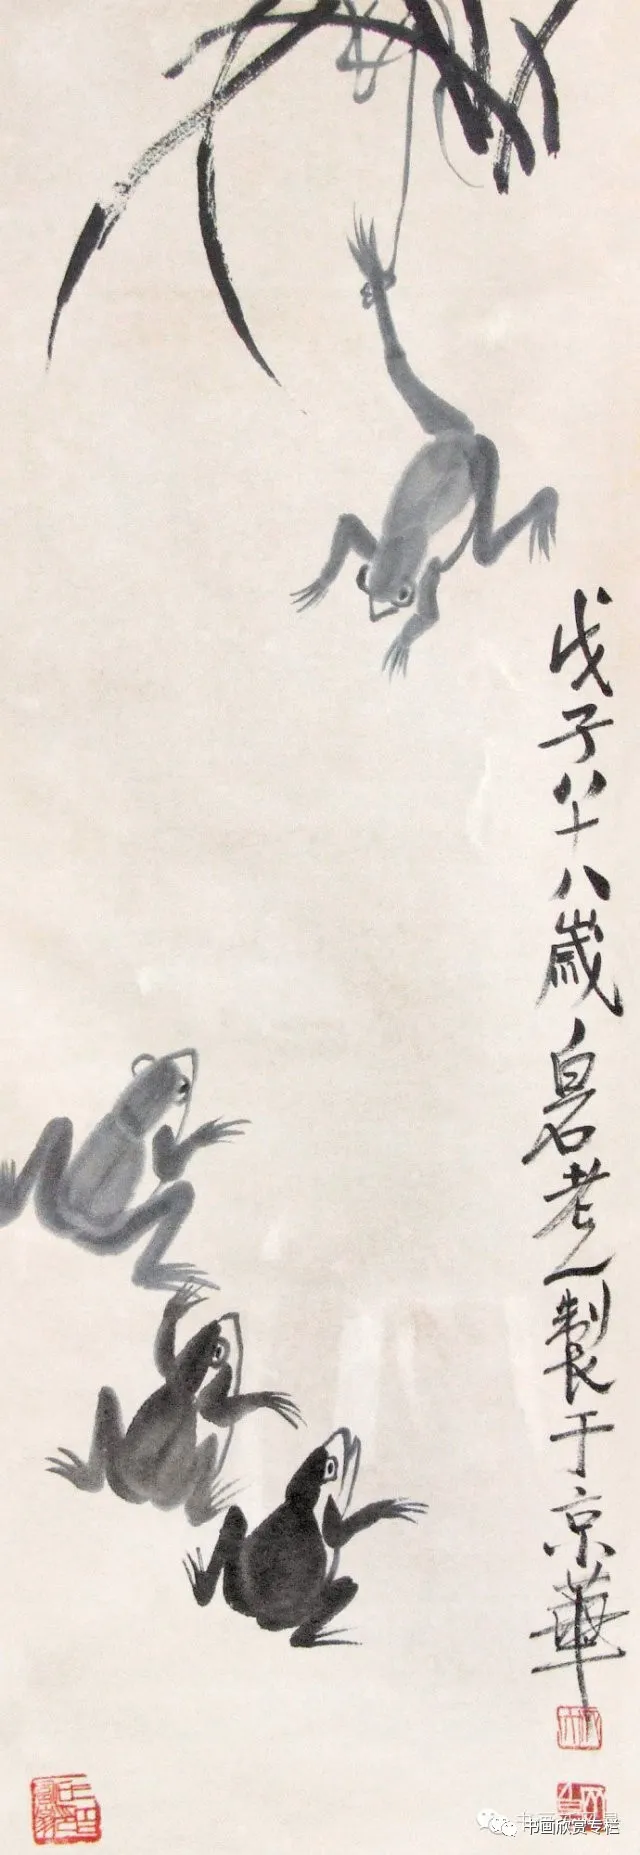 戊子八十八歲白石老人製于京華
书画欣赏专栏